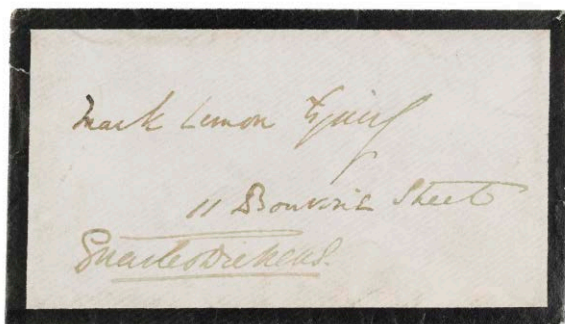 Mark Lemon Esquire
11 Bouverie Street
Charles Dickens.